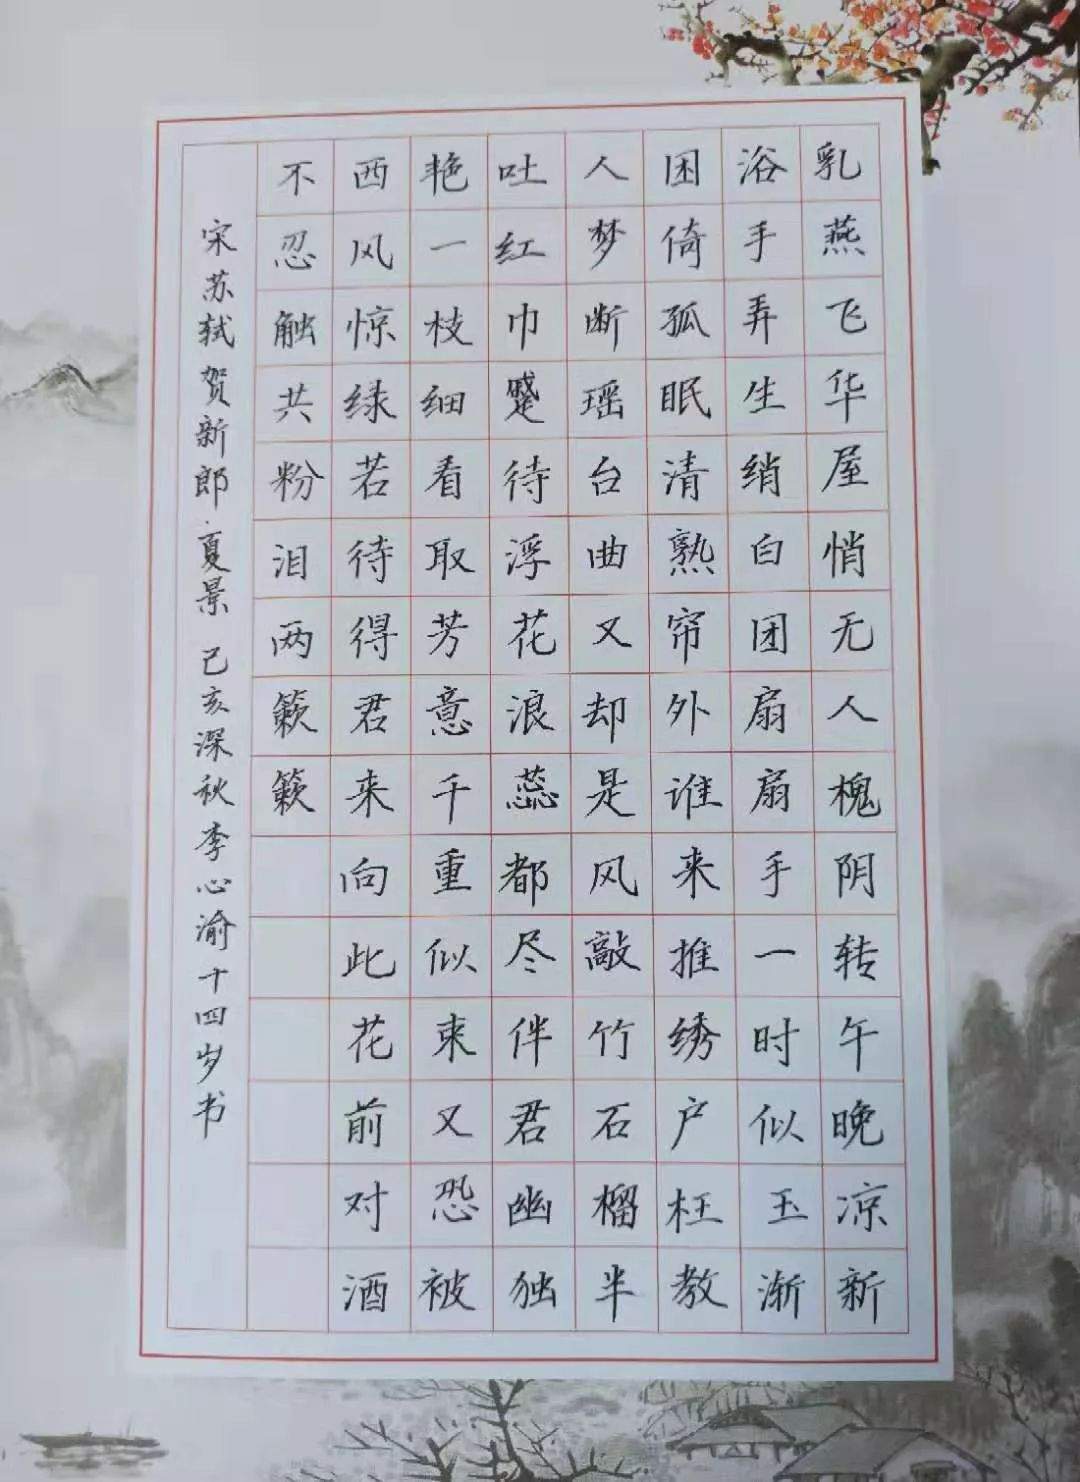 乳燕飞华屋悄无人槐阴转午晚凉新
浴手弄生绡白团扇扇手一时似玉渐
困倚孤眠清熟帘外谁来推绣户枉教
人梦断瑶台曲又却是风敲竹石榴半
吐红巾蹙待浮花浪蕊都尽伴君幽独
艳一枝细看取芳意千重似束又恐被
西风惊绿若待得君来向此花前对酒
不忍触共粉泪两簌簌
宋苏轼贺新郎·夏景 己亥深秋李心渝十四岁书